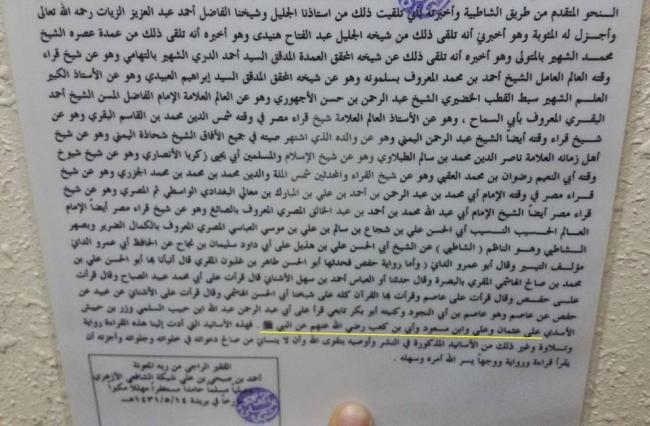 النحو المتقدم من طريق الشاطبية وأخبرته بأني تلقيت ذلك من استاذنا الجليل وشيخنا الفاضل أحمد عبد العزيز الزيات رحمه الله تعالى
وأجزل له المثوبة وهو أخبرني أنه تلقى ذلك من شيخه الجليل عبد الفتاح هنيدى وهو أخبره أنه تلقى ذلك من عمدة عصره الشيخ
محمد الشهير بالمتولى وهو أخبره أنه تلقى ذلك عن شيخه المحقق العمدة المدقق السيد أحمد الدري الشهير بالتهامي وهو عن شيخ قراء
وقته العالم العامل الشيخ أحمد بن محمد المعروف بسلمونه وهو عن شيخه المحقق المدقق السيد إبراهيم العبيدي وهو عن الأستاذ الكبير
العلم الشهير سبط القطب الخضيري الشيخ عبد الرحمن بن حسن الأجهوري وهو عن العالم العلامة الإمام الفاضل المسن الشيخ أحمد
البقري المعروف بأبي السماح، وهو عن الأستاذ العالم العلامة شيخ قراء مصر في وقته شمس الدين محمد بن القاسم البقري وهو عن
شيخ قراء وقته أيضاً الشيخ عبد الرحمن اليمني وهو عن والده الذي اشتهر صيته في جميع الآفاق الشيخ شحاذة اليمني وهو عن شيخ
أهل زمانه العلامة ناصر الدين محمد بن سالم الطبلاوي وهو عن شيخ الإسلام والمسلمين أبي يحيى زكريا الأنصاري وهو عن شيخ شيوخ
وقته أبي النعيم رضوان بن محمد العقبي وهو عن شيخ القراء والمحدثين شمس الملة والدين محمد بن محمد بن محمد الجزري وهو عن شيخ
قراء مصر في وقته الإمام أبي محمد بن عبد الرحمن بن أحمد بن علي بن المبارك بن معالي البغدادي الواسطي ثم المصري وهو عن شيخ
قراء مصر أيضاً الشيخ الإمام أبي عبد الله محمد بن أحمد بن عبد الخالق المصري المعروف بالصائغ وهو عن شيخ قراء مصر أيضاً الإمام
العالم الحسيب النسيب أبي الحسن علي بن شجاع بن سالم بن علي بن موسى العباسي المصري المعروف بالكمال الضرير وبصهر
الشاطبي وهو الناظم (الشاطبي) عن الشيخ أبي الحسن علي بن هذيل على أبي داود سليمان بن نجاح عن الحافظ أبي عمرو الداني (
مؤلف التيسير وقال أبو عمرو الداني ( وأما رواية حفص فحدثنا بها أبو الحسن طاهر بن غلبون المقري قال أنبأنا بها أبو الحسن علي بن
محمد بن صالح الهاشمي المقري بالبصرة وقال حدثنا أبو العباس أحمد بن سهل الأشناني قال قرأت على أبي محمد عبيد الصباح وقال قرأت
على حفص وقال قرأت على عاصم وقرأت بها القرآن كله على شيخنا أبي الحسن الهاشمي وقال قرأت على الأشناني عن عبيد عن
حفص عن عاصم وعاصم هو أبي النجود وكنيته أبو بكر تابعي قرأ على أبي عبد الرحمن عبد الله ابن حبيب السلمي وزر بن حبيش
الأسدي على عثمان وعلي وابن مسعود وأبي بن كعب رضي الله عنهم عن النبي ﷺ فهذه الأسانيد التي أدت إلينا هذه القراءة رواية
وتلاوة وغير ذلك من الأسانيد المذكورة في النشر وأوصيه بتقوى الله وأن لا ينساني من صالح دعوته في خلواته وجلواته وأجزته أن
يقرأ قراءة ورواية ووجهاً يسر الله أمره وسهله .
الفقير الراجي من ربه المعونة
أحمد بن صبحي بن علي شبكة الشافعي الأزهري
مصلياً مسلماً حامداً مستغفراً مهللاً مكبراً
في بريدة ١٤٣١/٥/١٤هـ